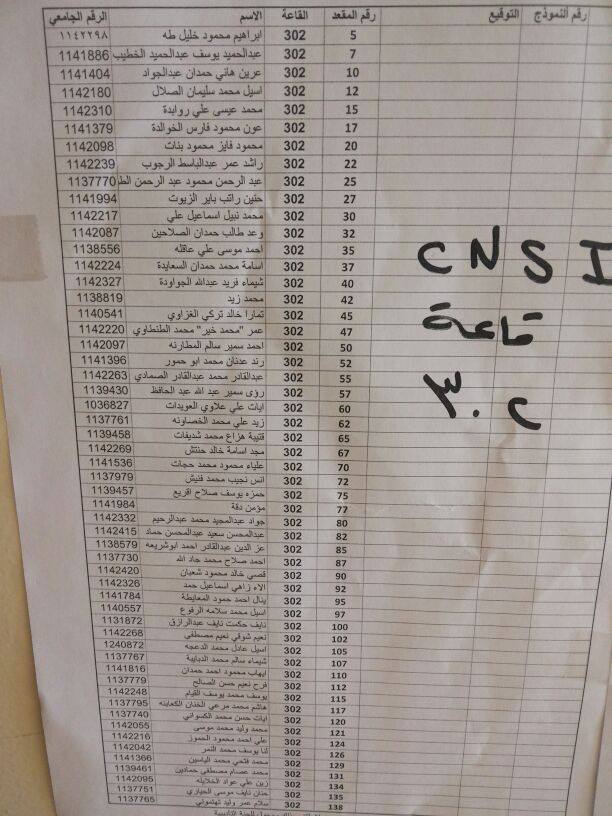 الرقم الجامعي الاسم القاعة رقم المقعد التوقيع رقم ألنموذج
١١٤٢٢٩٨ ابراهيم محمود خليل طه 302 5
1141886 عبدالحميد يوسف عبدالحميد الخطيب 302 7
1141404 عرين هاني حمدان عبدالجواد 302 10
1142180 اسيل محمد سليمان الصلال 302 12
1142310 محمد عيسى علي روابدة 302 15
1141379 عون محمود فارس الخوالدة 302 17
1142098 محمود فايز محمود بنات 302 20
1142239 راشد عمر عبدالباسط الرجوب 302 22
1137770 عبد الرحمن محمود عبد الرحمن الط 302 25
1141994 حنين راتب باير الزيوت 302 27
1142217 محمد نبيل اسماعيل علي 302 30
1142087 وعد طالب حمدان الصلاحين 302 32
1138556 احمد موسى علي عاقله 302 35
1142224 اسامة محمد حمدان السعايدة 302 37
1142327 شيماء فريد عبدالله الجواودة 302 40
1138819 محمد زيد 302 42
1140541 تمارا خالد تركي الغزاوي 302 45
1142220 عمر "محمد خير" محمد الطنطاوي 302 47
1142097 احمد سمير سالم المطارنه 302 50
1141396 رند عدنان محمد ابو حمور 302 52
1142263 عبدالقادر محمد عبدالقادر الصمادي 302 55
1139430 رؤى سمير عبد الله عبد الحافظ 302 57
1036827 ايات علي علاوي العويدات 302 60
1137761 زيد علي محمد الخصاونه 302 62
1139458 قتيبة هزاع محمد شديفات 302 65
1142269 مجد اسامة خالد حنتش 302 67
1141536 علياء محمود محمد حجات 302 70
1137979 انس نجيب محمد قنيش 302 72
1139457 حمزه يوسف صلاح اقريع 302 75
1141984 مؤمن دقة 302 77
1142332 جواد عبدالمجيد محمد عبدالرحيم 302 80
1142415 عبدالمحسن سعيد عبدالمحسن حماد 302 82
1138579 عز الدين عبدالقادر احمد ابوشريعه 302 85
1137730 احمد صلاح محمد جاد الله 302 87
1142420 قصي خالد محمود شعبان 302 90
1142326 الاء زاهي اسماعيل حمد 302 92
1141784 ينال احمد حمود المعايطة 302 95
1140557 اسيل محمد سلامه الرفوع 302 97
1131872 نايف حكمت نايف عبدالرازق 302 100
1142268 نعيم شوقي نعيم مصطفى 302 102
1240872 اسيل عادل محمد الدعجه 302 105
1137767 شيماء سالم محمد الدبايبة 302 107
1141816 ايهاب محمود احمد حمدان 302 110
1137779 فرح نعيم حسن الصالح 302 112
1142248 يوسف محمد يوسف القيام 302 115
1137795 هاشم محمد مرعي الخنان الكعابنه 302 117
1137740 ايات حسن محمد الكسواني 302 120
1142055 محمد وليد محمد موسى 302 121
1142216 علي احمد محمود الحموز 302 124
1142042 انا يوسف محمد النمر 302 126
1141366 محمد فتحي محمد الياسين 302 129
1139461 محمد عصام مصطفى حمادين 302 131
1142095 زين علي عواد الخلايله 302 134
1137751 حنان نايف موسى الحياري 302 135
1137765 سلام عمر وليد تهتموني 302 138
CNSI
قاعة
٣٠٢